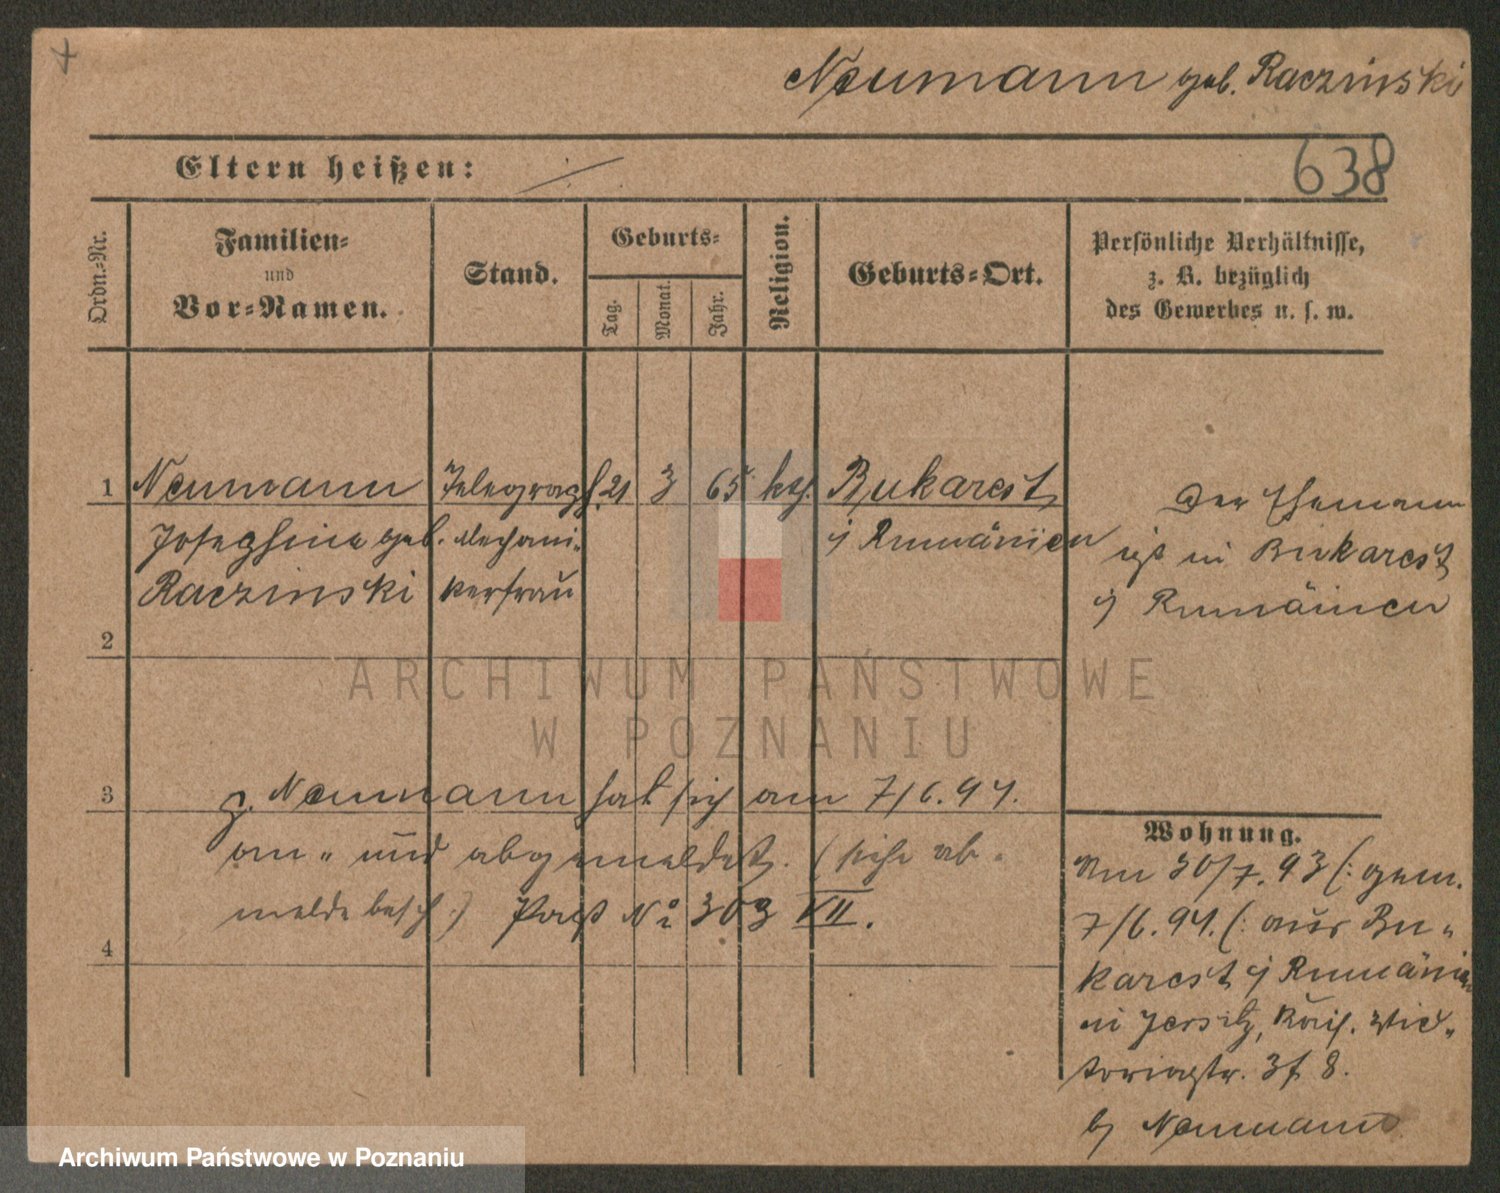 Neumann geb. Raczinski
638
Eltern heißen:
Ordn.-Nr.
Familien-
und
Vor-Namen.
Stand.
Geburts-
Tag.
Monat.
Jahr.
Religion.
Geburts-Ort.
Persönliche Verhältnisse,
z. B. bezüglich
des Gewerbes u. s. w.
1 Neumann Telegraph. 21 3 65 kth. Bukarest
Josephine geb. Mechani-
Raczinski kerfrau
i/ Rumänien
Der Ehemann
ist in Bukarest
i/ Rumänien
2
ARCHIWUM PAŃSTWOWE
W POZNANIU
3 Neumann hat sich am 7/6.94.
an- und abgemeldet. (siehe ab-
meldebesch.) Paß No 303 VII.
4
Wohnung.
Am 30/7.93 (: gem.
7/6.94. (: aus Bu-
karest i/ Rumänien
in Jersitz, Kais. Vic-
toriastr. 3 f 8.
b/ Neumann
Archiwum Państwowe w Poznaniu